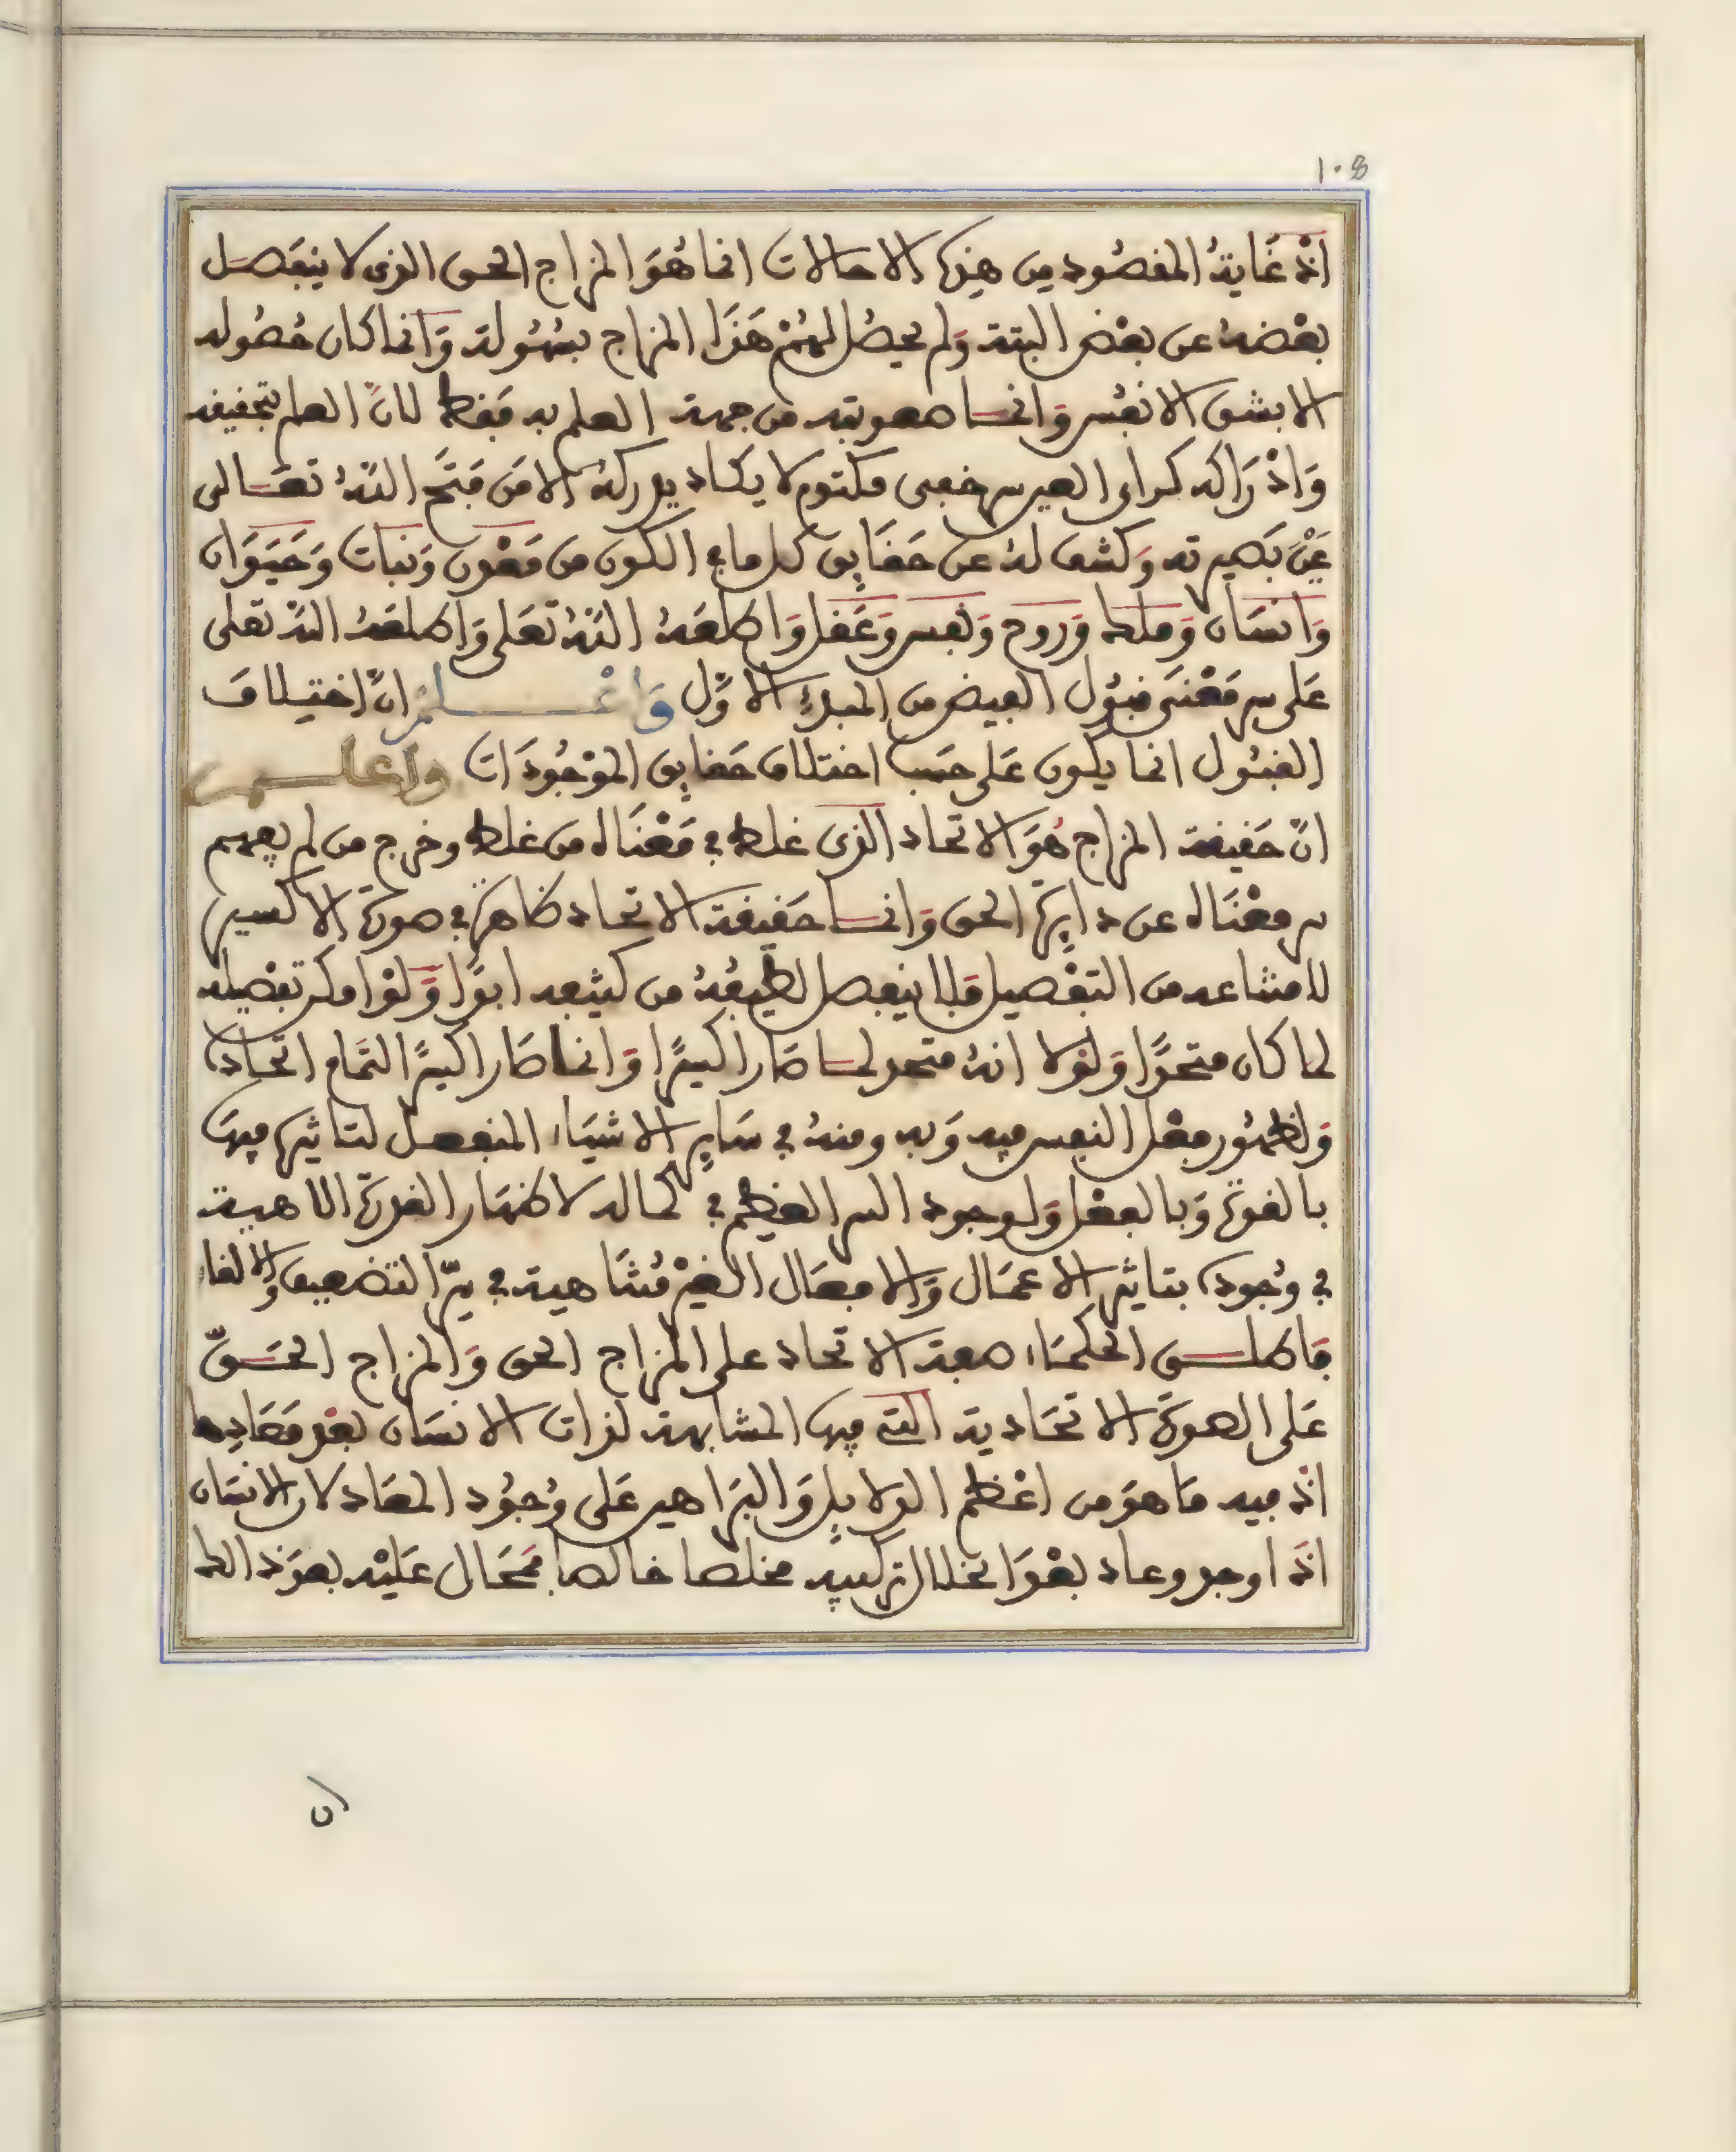 ١٠٨
اذ غاية المقصود من هذه الاحالات انما هو المزاج الحق الذى لا ينفصل
بعضه عن بعض البتة ولم يحصل لهم هذا المزاج بسهولة وانما كان حصوله
الا بشق الانفس وانما صعوبته من جهة العلم به فقط لان العلم بتحقيقه
واذراكه كراى العين سر خفى مكتوم لا يكاد يدركه الا من فتح الله تعالى
عين بصيرته وكشف له عن حقايق كل ما فى الكون من معدن ونبات وحيوان
وانسان وملك وروح ونفس وعقل واطلعه الله تعلى واطلعه الله تعلى
على سر معنى قبول الفيض من المبدإ الاول واعلم ان اختيلاف
القبول انما يكون على حسب اختلاف حقايق الموجودات واعلم
ان حقيقة المزاج هو الاتحاد الذى غلط فى معناه من غلط وخرج من لم يفهم
سر معناه عن دايرة الحق وانما حقيقة الاتحاد ظاهرة فى صورة الاكسير
لامتناعه من التفصيل فلا ينفصل لطيفه من كثيفه ابدا ولو امكن تفصيله
لما كان متحدا ولولا انه متحد لما صار اكسيرا وانما صار اكسيرا لتمام اتحاده
ولظهور فعل النفس فيه وبه ومنه فى ساير الاشياء المنفعل لتاثيره فيها
بالقوة وبالفعل ولوجود السر العظيم فى كماله لاظهار القدرة الالاهية
فى وجوده بتاثير الاعمال والافعال الغير متناهية فى سر التضعيف والالقاء
فاطلق الحكماء صفة الاتحاد على المزاج الحق والمزاج الحق
على الصورة الاتحادية التى فيها المشابهة لذات الانسان بعد معادها
اذ فيه ما هو من اعظم الدلايل والبراهين على وجود المعاد لان الانسان
اذا وجد وعاد بعد انحلال تركيبه مخلصا خالصا فمحال عليه بعد ذالك
ان